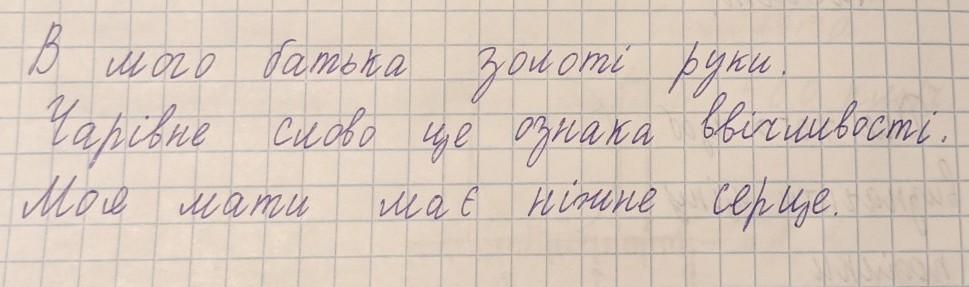 В мого батька золоті руки.
Чарівне слово це ознака ввічливості.
Моя мати має ніжне серце.